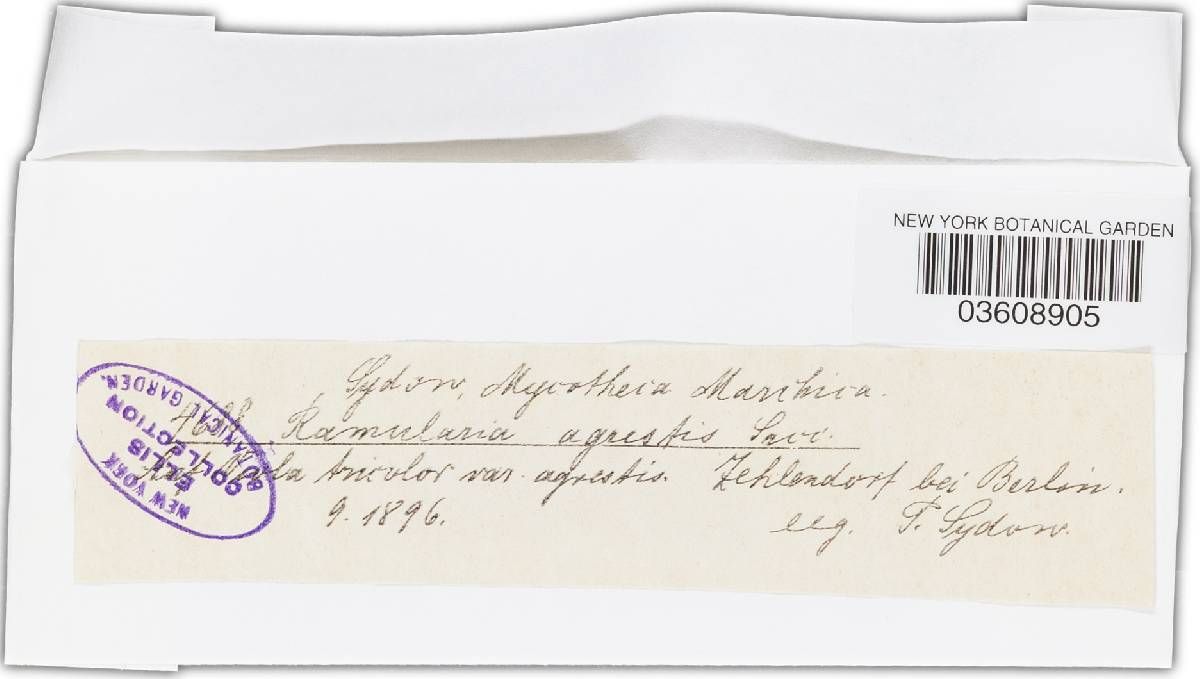 NEW YORK BOTANICAL GARDEN
03608905
Sydow, Mycotheca Marchica.
Ramularia agrestis Sacc.
Auf Viola tricolor var. agrestis. Zehlendorf bei Berlin.
9. 1896. leg. P. Sydow.
NEW YORK
BOTANICAL GARDEN.
ELLIS
COLLECTION